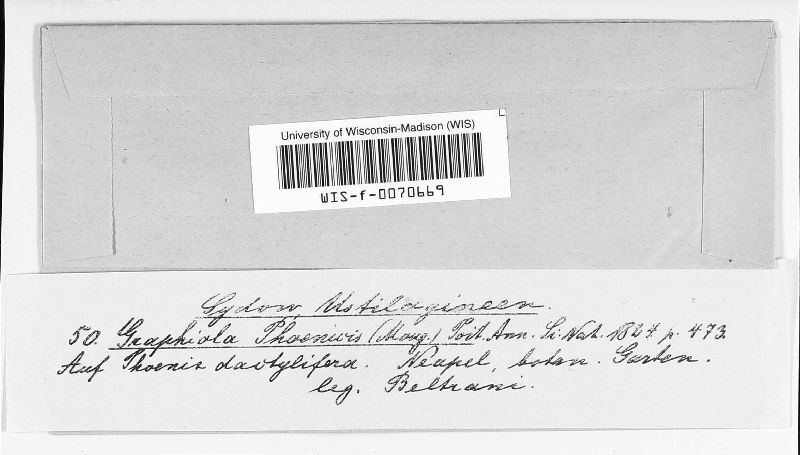 University of Wisconsin-Madison (WIS)
WIS-f-0070669
Sydow, Ustilagineen.
50. Graphiola Phoenicis (Moug.) Poit. Ann. Sc. Nat. 1824 p. 473.
Auf Phoenix dactylifera. Neapel, botan. Garten.
leg. Beltrani.